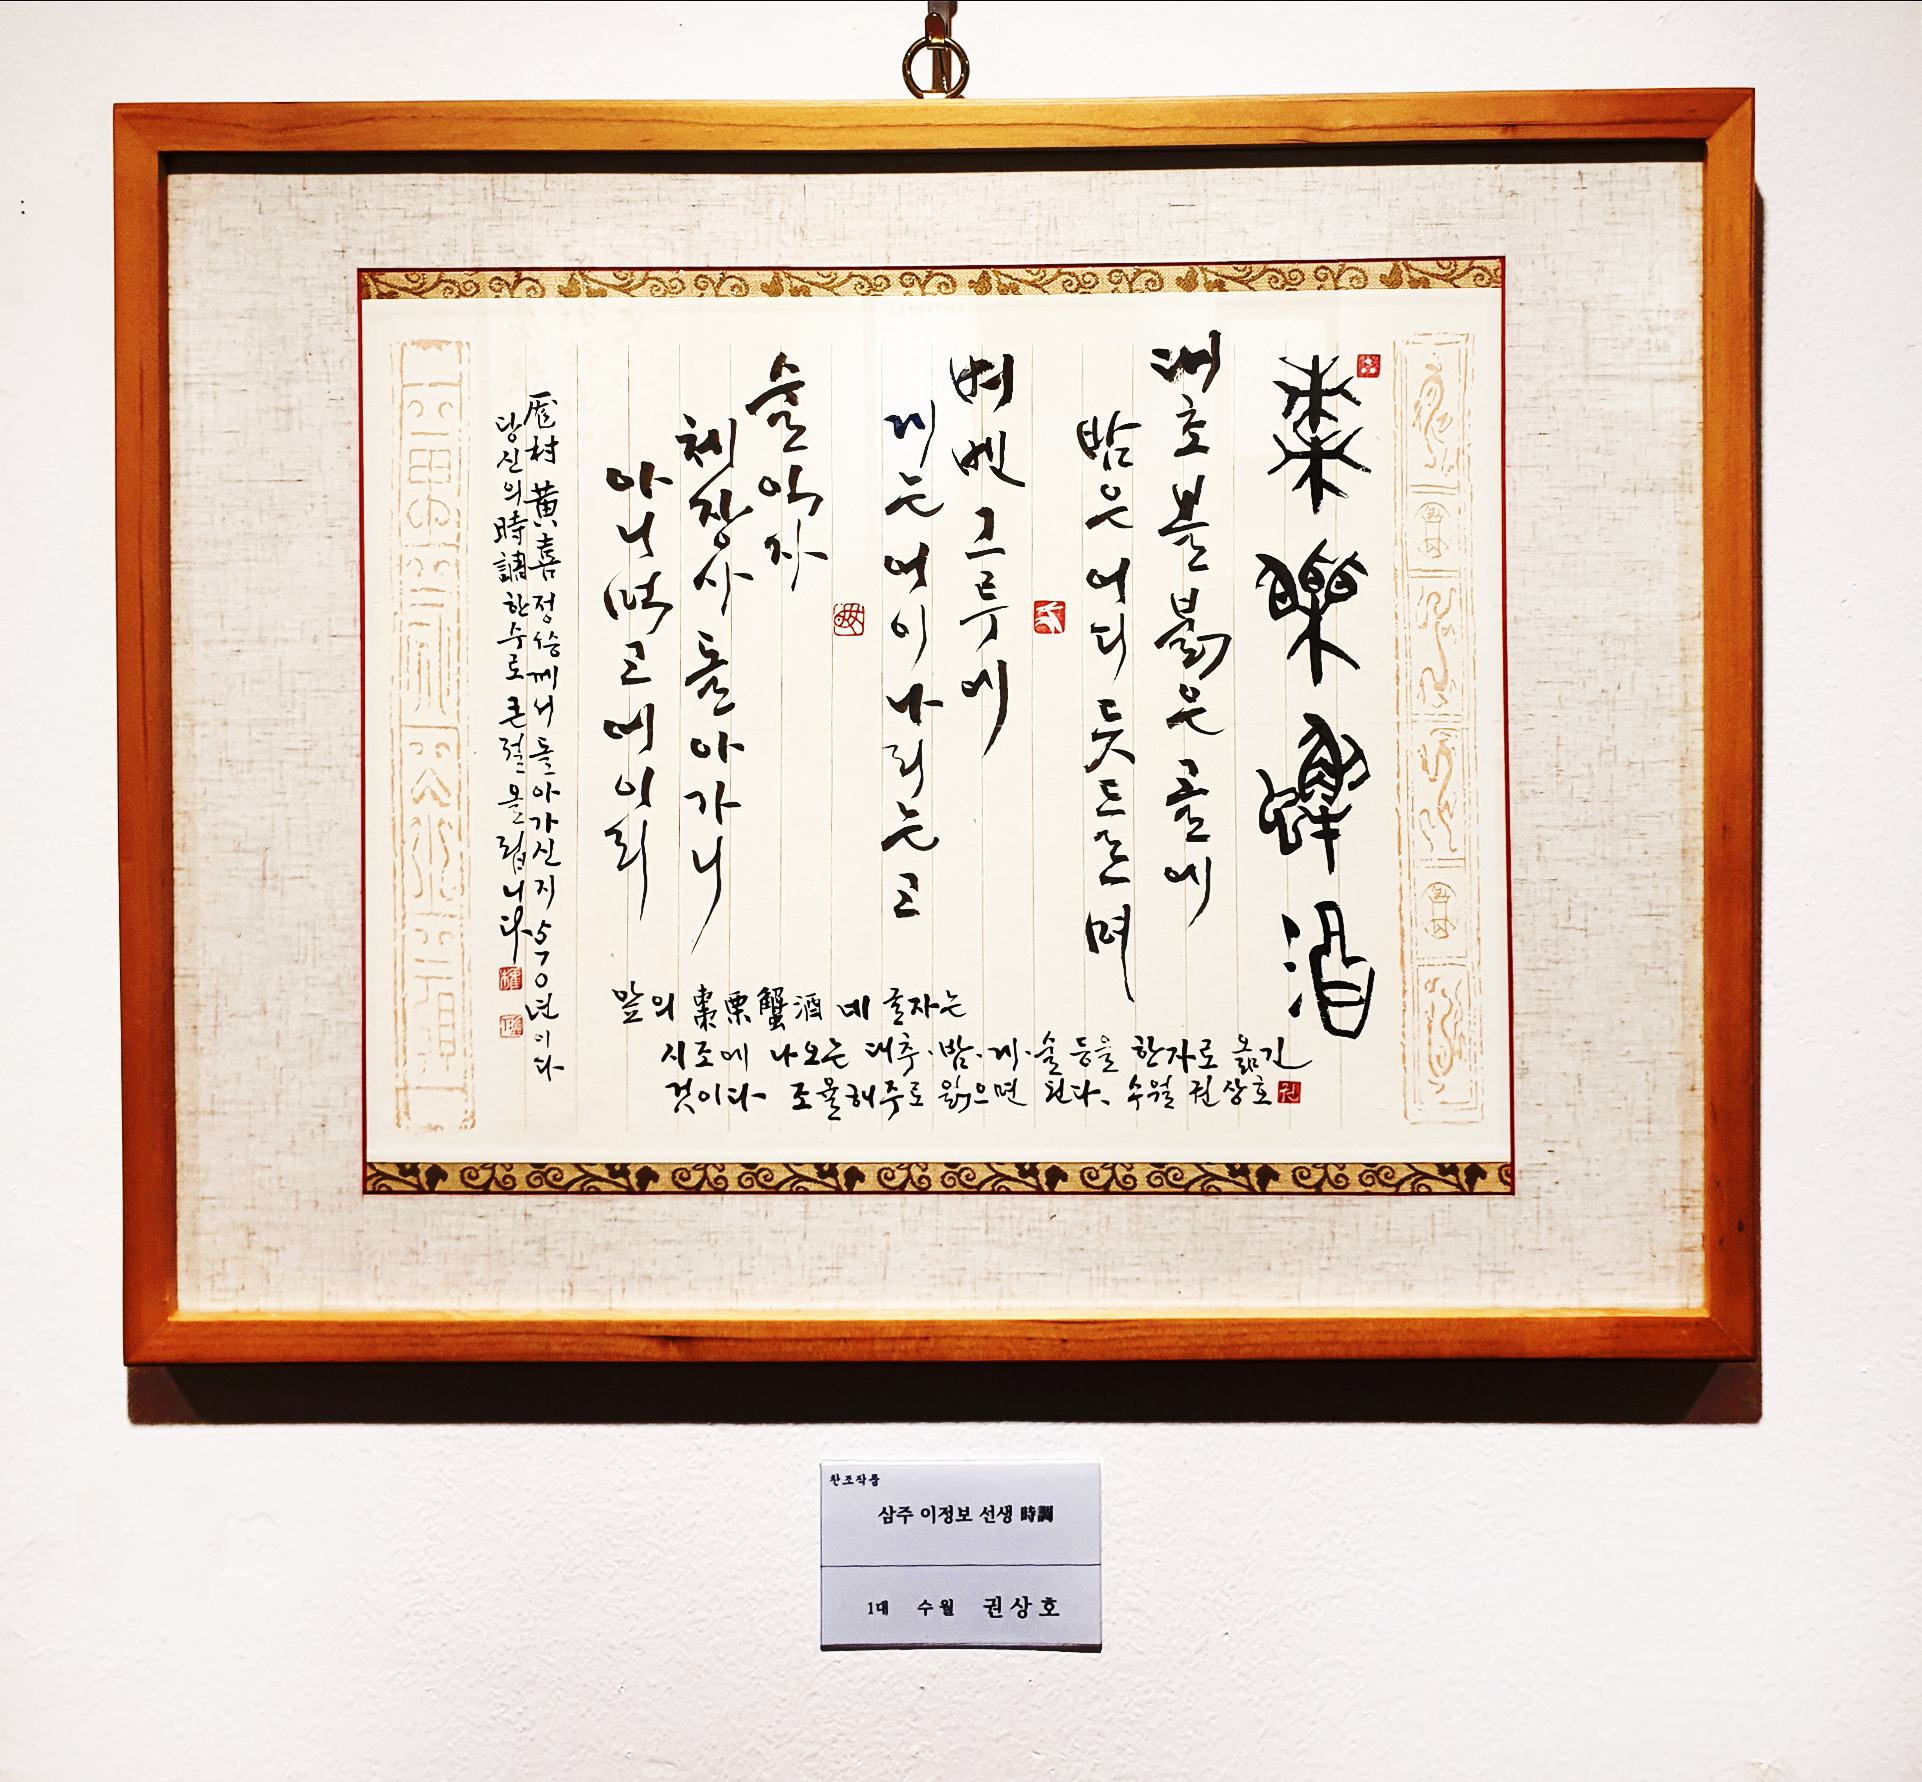 棗栗蟹酒
대초볼붉은골에
밤은어디듯드르며
벼벤그루에
게는어이나리는고
술익자
체장사돌아가니
아니먹고어이리
앞의 棗栗蟹酒 네 글자는
시조에 나오는 대추·밤·게·술 등을 한자로 옮긴
것이다 조율해주로 읽으면 된다. 수월 권상호
厖村 黃喜 정승께서 돌아가신지 570년이다
당신의 時調 한 수로 큰 절 올립니다
찬조작품
삼주 이정보 선생 時調
1대 수월 권상호